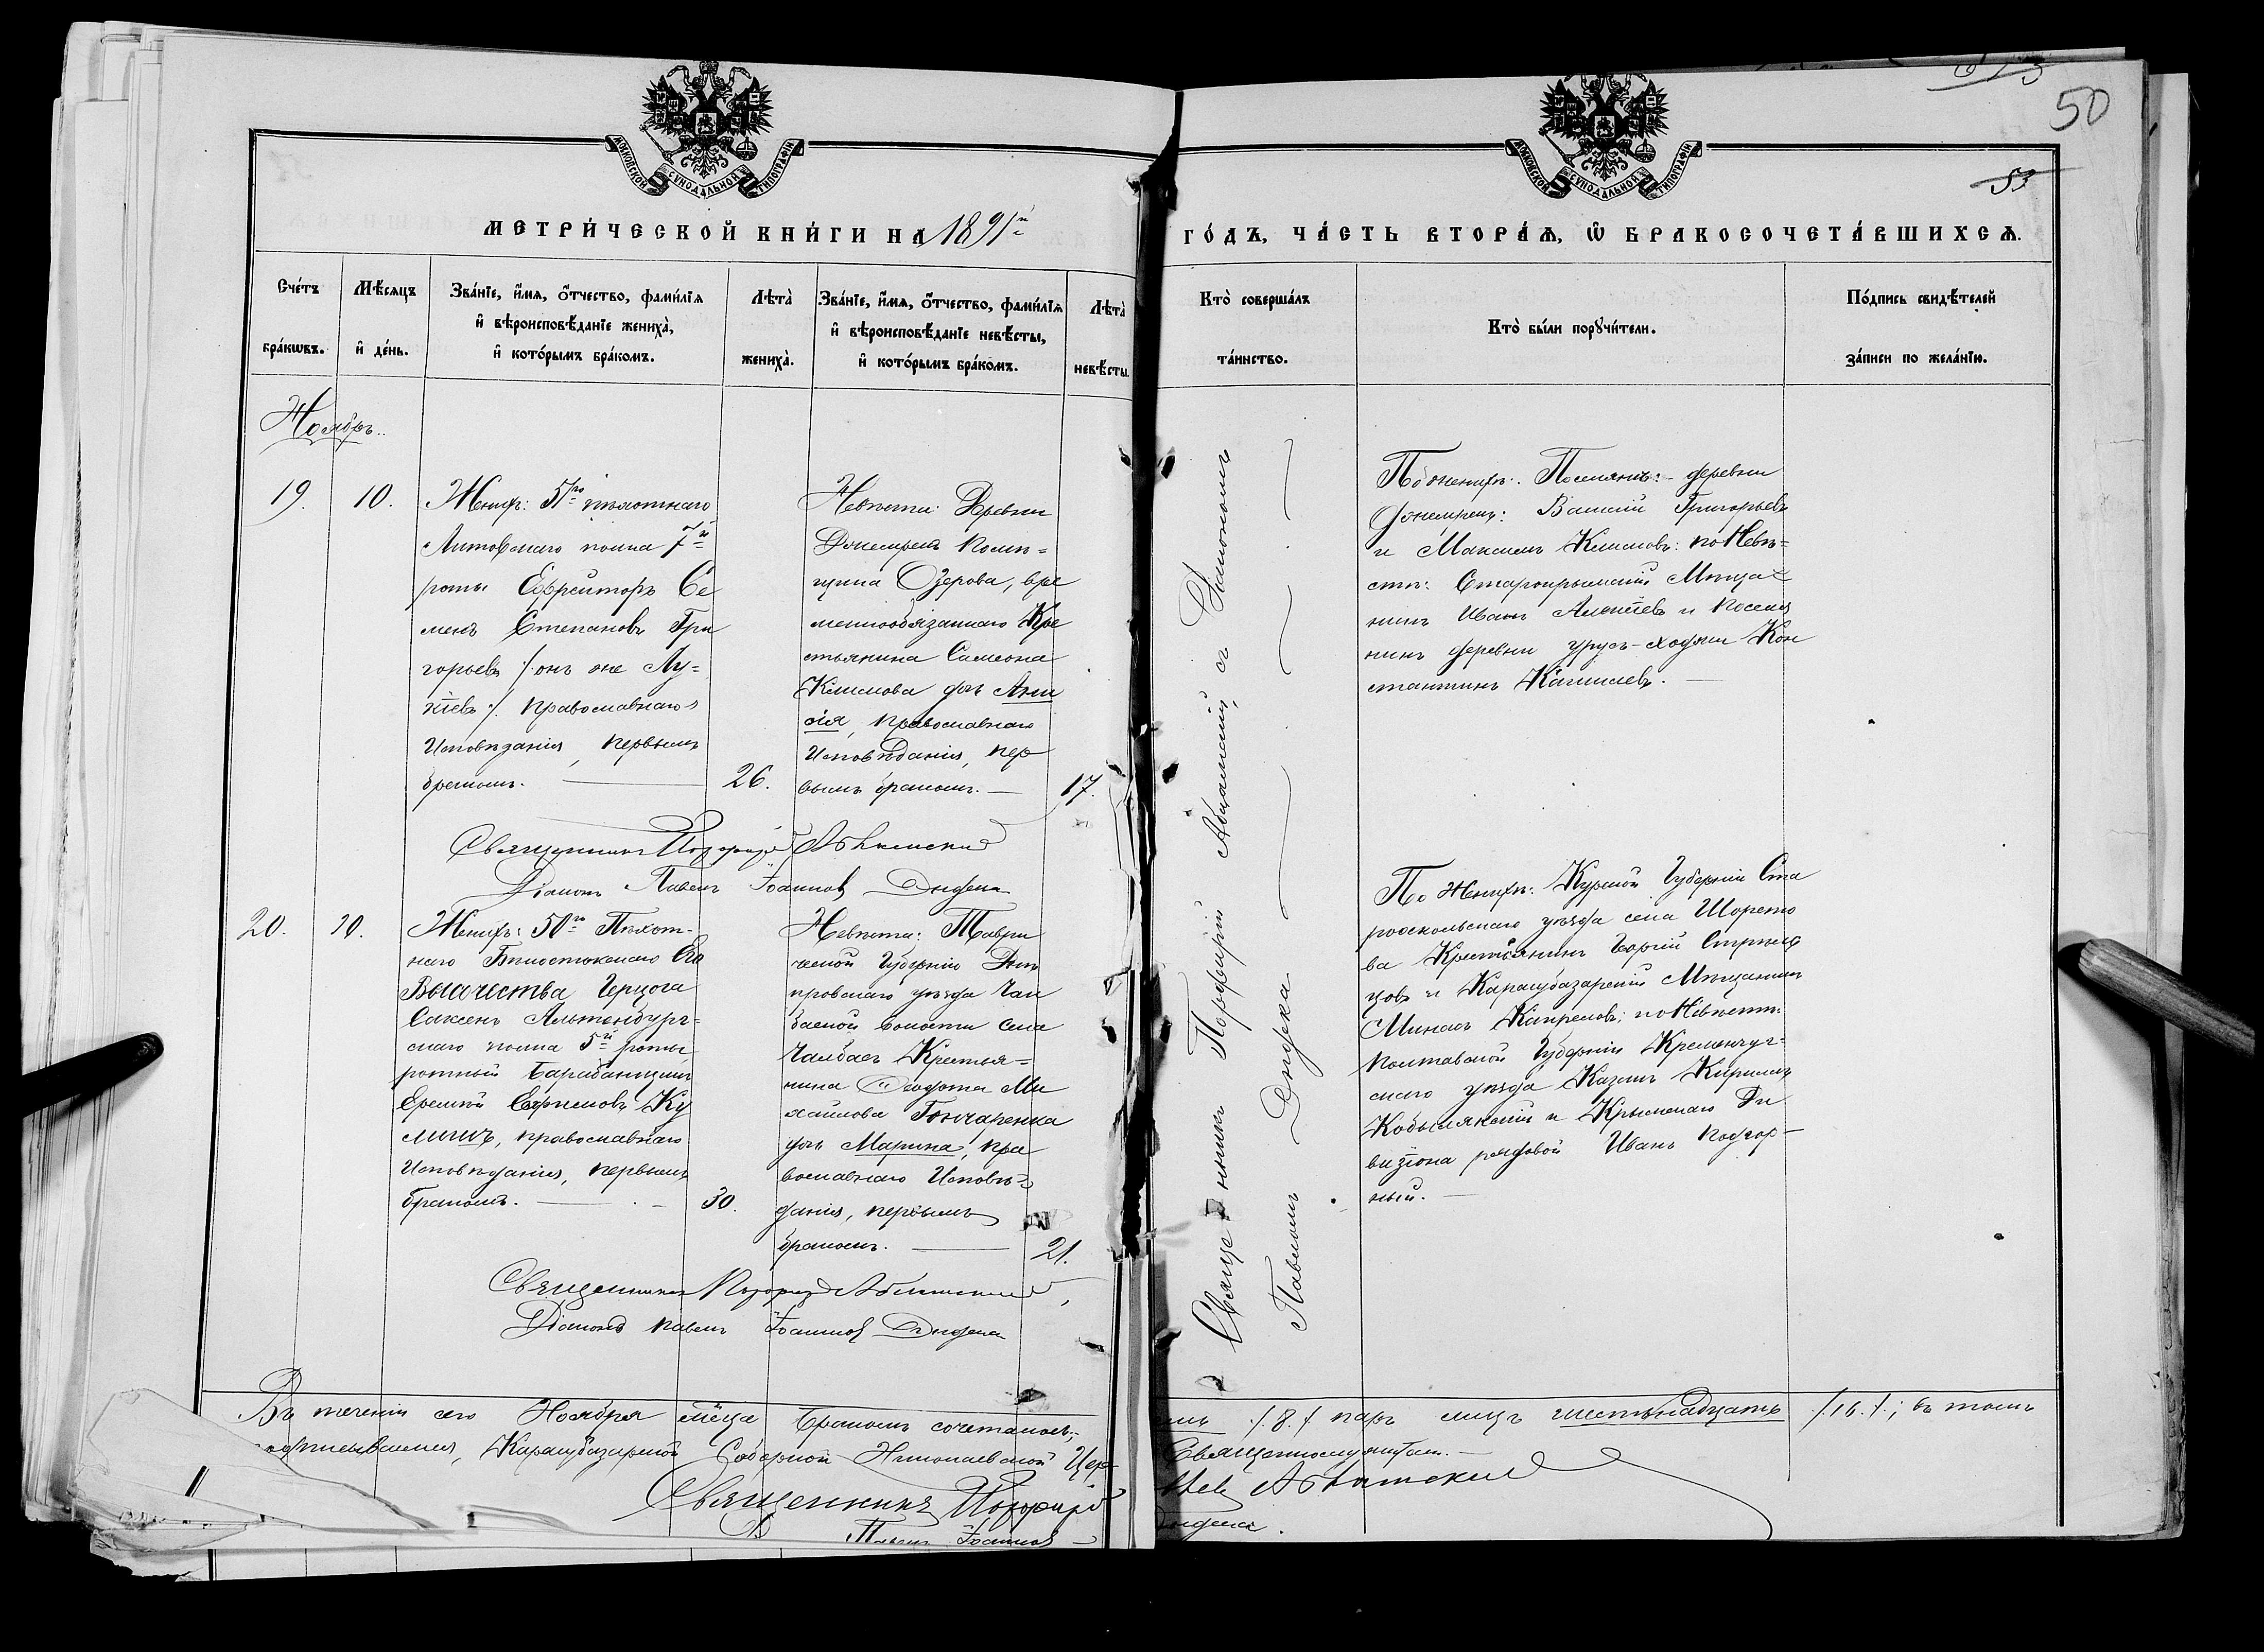 50
53
МОСКОВСКОЙ СѴНОДАЛЬНОЙ ТИПОГРАФІИ
МОСКОВСКОЙ СѴНОДАЛЬНОЙ ТИПОГРАФІИ
МЕТРИ́ЧЕСКОЙ КНИ́ГИ НА 1891й
ГО́ДЪ, ЧА́СТЬ ВТОРА́Ѧ, Ѽ БРАКОСОЧЕТА́ВШИХСѦ.
Сче́тъ
бра́кѡвъ.
Мѣ́сяцъ
и҆ де́нь.
Зва́нїе, и҆́мѧ, ѻ҆́тчество, фами́лїѧ
и҆ вѣроисповѣ́данїе жениха̀,
и҆ кото́рымъ бра́комъ.
Лѣта̀
жениха̀.
Зва́нїе, и҆́мѧ, ѻ҆́тчество, фами́лїѧ
и҆ вѣроисповѣ́данїе невѣ́сты,
и҆ кото́рымъ бра́комъ.
Лѣта̀
невѣ́сты.
Кто̀ соверша́лъ
та́инство.
Кто̀ бы́ли порꙋчи́тели.
По́дпись свидѣ́телей
за́писи по жела́нїю.
Ноябрь.
19.
10.
Женихъ: 51го пѣхотнаго
Литовскаго полка 7й
роты Ефрейторъ Се
менъ Степановъ Гри
горьевъ /онъ же Лу=
кіевъ/. православнаго
Исповѣданія, первымъ
бракомъ.
26.
Невѣста: Деревни
Посели=
гупка Озерова, вре
меннообязаннаго Кре
стьянина Симеона
Климова дочь Ани
сія, православнаго
Исповѣданія, пер
вымъ бракомъ.
17.
Священникъ Порфирій
Діаконъ Павелъ Іоанновъ
Священникъ Порфирій с Діакономъ
Павломъ
По женихѣ: Поселянѣ: деревни
Василій Григорьевъ
и Максимъ Климовъ: по Невѣ=
стѣ: Старокрымскій Мѣща
нинъ Иванъ Алексѣевъ и Поселя
нинъ деревни урусъ-ходжи Кон
стантинъ
20.
10.
Женихъ: 50го Пѣхот-
наго Бѣлостокскаго Его
Высочества Герцога
Саксенъ Альтенбург=
скаго полка 5й роты
ротный Барабанщикъ
Еремѣй Ефимовъ Ку
православнаго
Исповѣданія, первымъ
бракомъ.
30.
Невѣста: Таври
ческой Губерніи Днѣ
провскаго уѣзда Чал
баской волости села
Чалбасъ Крестья=
нина Ѳеодота Ми
хайлова Гончаренка
дочь Марина, пра
вославнаго Исповѣ=
данія, первымъ
бракомъ.
21.
По Женихѣ: Курской Губерніи Ста
рооскольскаго уѣзда села
ва Крестьянинъ Георгій Стрѣль
цовъ и Карасубазарскій Мѣщанинъ
Минасъ по Невѣстѣ:
Полтавской Губерніи Кременчуг=
скаго уѣзда Казакъ Кирилъ
Кобылякскій и Крымскаго Ди
визіона рядовой Иванъ Подгор-
ный.
Священникъ Порфирій
Діаконъ Павелъ Іоанновъ
Въ теченіи сего Ноября мѣсяца Бракомъ сочеталось:
/8./ паръ лицъ шестьнадцать /16./; въ томъ
подписываемся, Карасубазарской Соборной Николаевской Цер
Священнослужители.
Священникъ Порфирій
Павелъ Іоанновъ